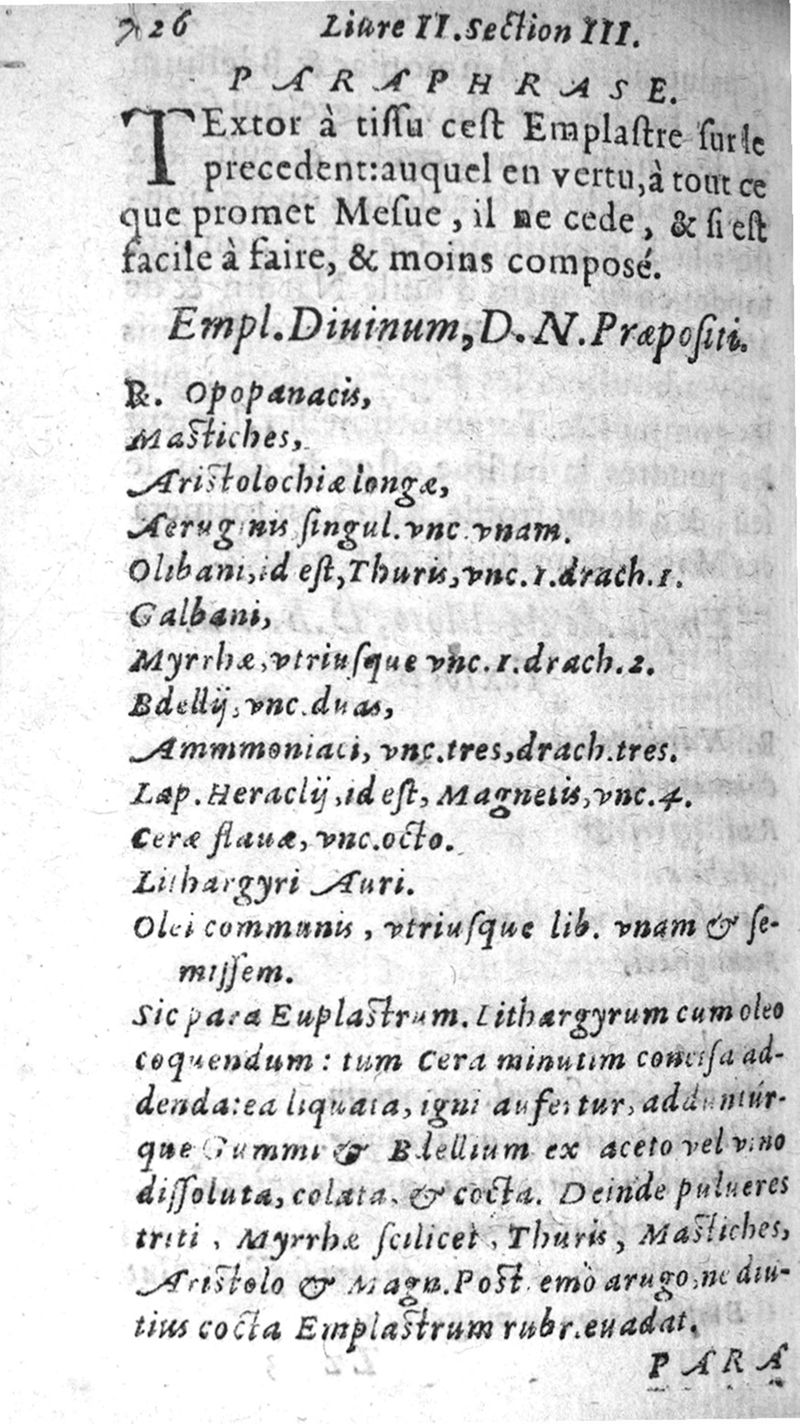 726 Liure II. Section III.
PARAPHRASE.
TExtor à tissu cest Emplastre sur le
precedent: auquel en vertu, à tout ce
que promet Mesue, il ne cede, & si est
facile à faire, & moins composé.
Empl. Diuinum, D. N. Præpositi.
℞. Opopanacis,
Mastiches,
Aristolochiæ longæ,
Aeruginis singul. vnc. vnam.
Olibani, id est, Thuris, vnc. 1. drach. 1.
Galbani,
Myrrhæ, vtriusque vnc. 1. drach. 2.
Bdellij, vnc. duas,
Ammmoniaci, vnc. tres, drach. tres.
Lap. Heraclij, id est, Magnetis, vnc. 4.
Ceræ flauæ, vnc. octo.
Lithargyri Auri.
Olei communis, vtriusque lib. vnam & se-
missem.
Sic para Euplastrum. Lithargyrum cum oleo
coquendum: tum Cera minutim concisa ad-
denda: ea liquata, igni aufertur, adduntúr-
que Gummi & Bdellium ex aceto vel vino
dissoluta, colata, & cocta. Deinde pulueres
triti, Myrrhæ scilicet, Thuris, Mastiches,
Aristolo & Magn. Postemò ærugo, ne diu-
tius cocta Emplastrum rubr. euadat.
PARA